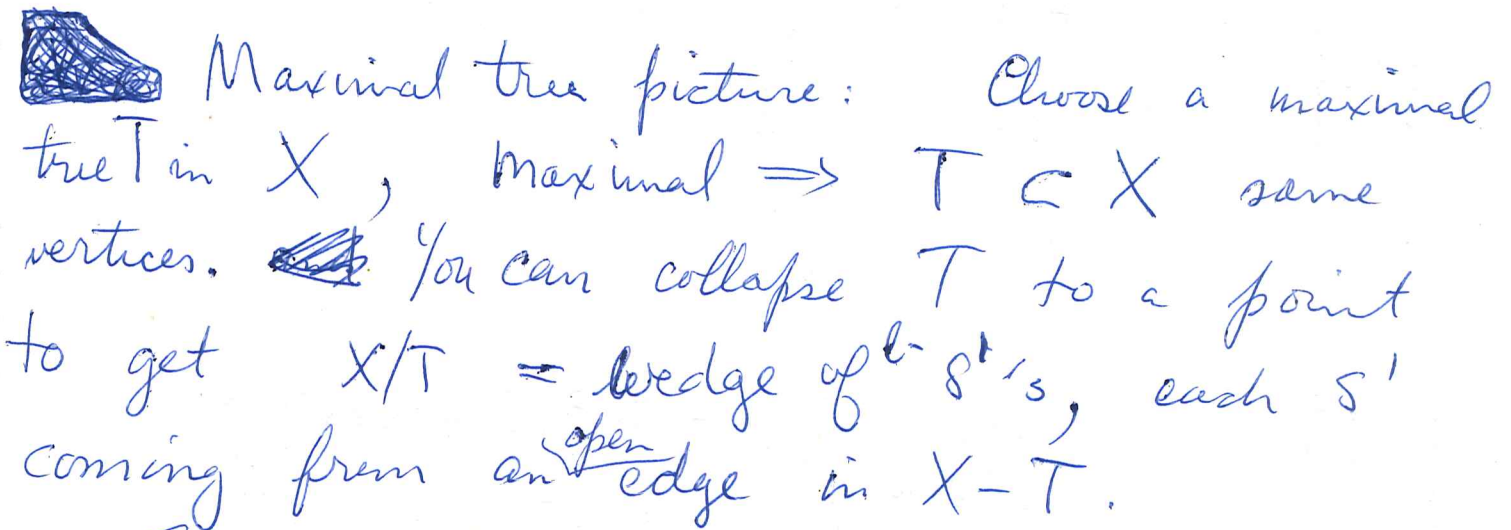 Maximal tree picture: Choose a maximal
tree T in X, maximal ⟹ T ⊂ X same
vertices. You can collapse T to a point
to get X/T = wedge of S¹'s, each S¹
coming from an open edge in X-T.